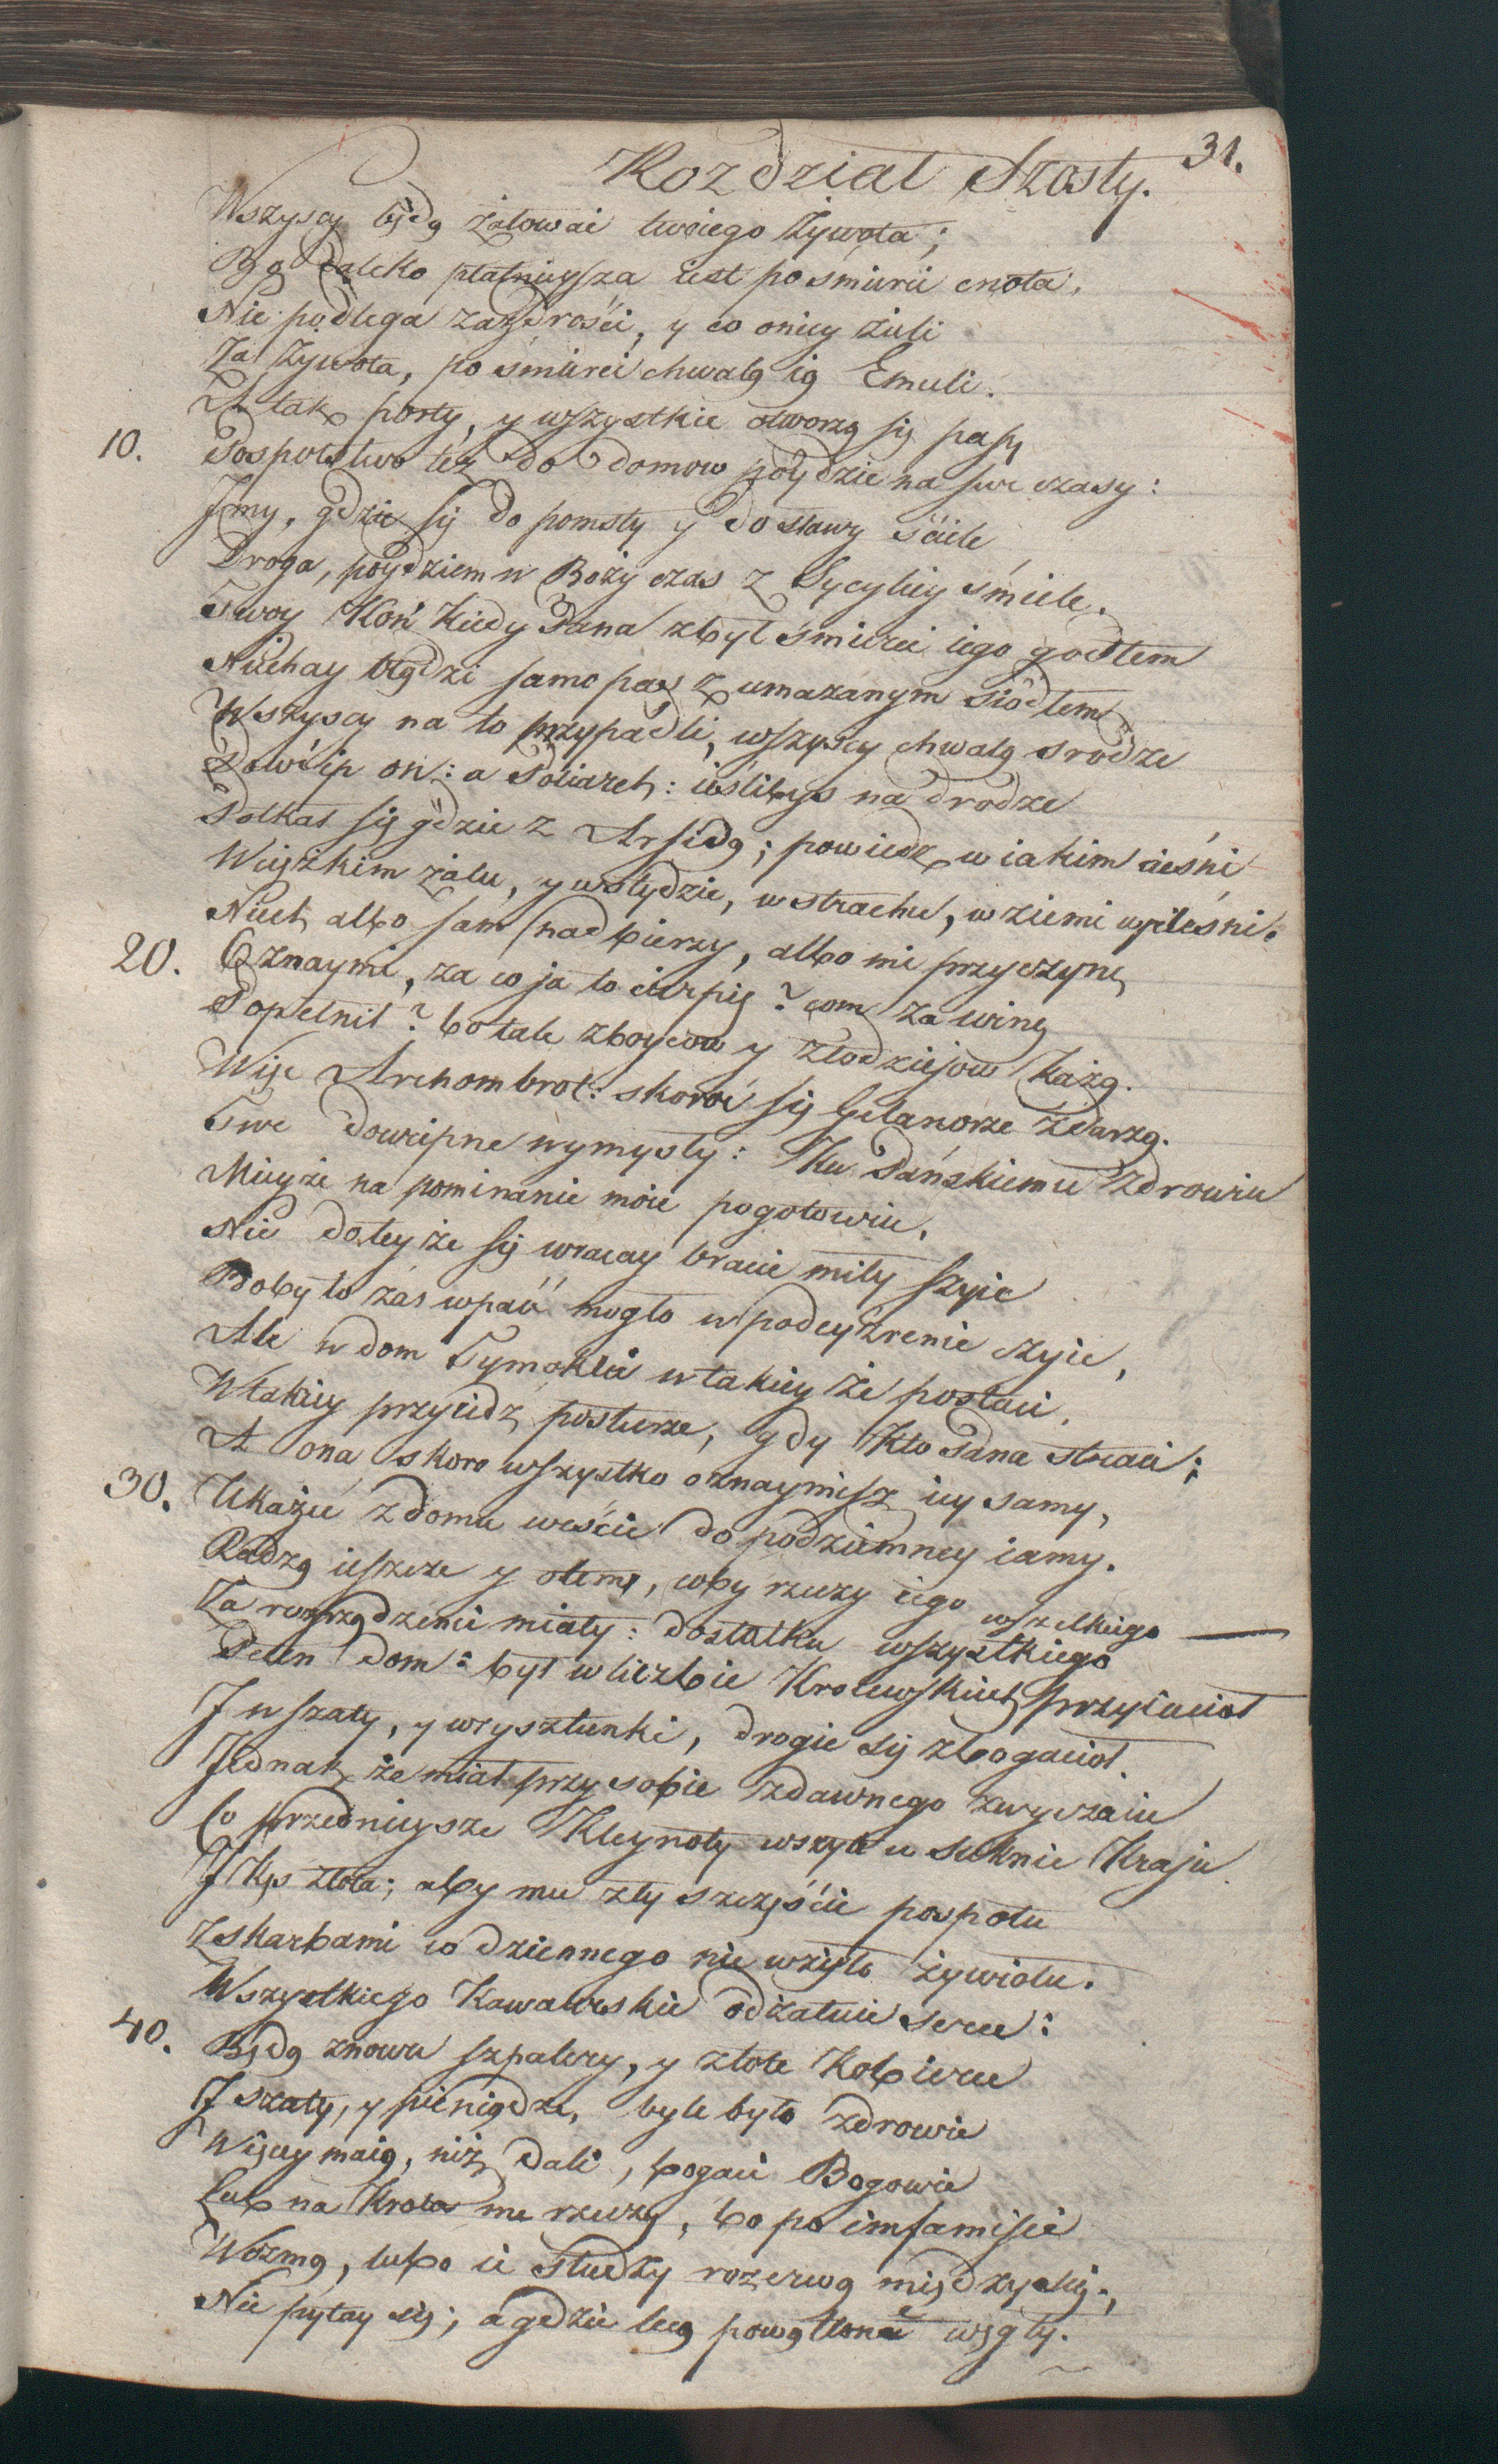 31.
Rozdział Szosty.
Wszyscy będą żałować twoiego Żywota;
Bo daleko płatnieysza iest po śmierci cnota,
Nie podlega zazdrości, y co oniey źieli
Za Żywota, po śmierci chwalą ią Emuli.
A tak porty, y wszystkie otworzą się pasy
10. Pospolstwo też do domow poydzie na swe czasy:
I my, gdzie się do pomsty y do sławy ściele
Droga, poydziem w Boży czas z Sycyliey śmiele.
Twoy Koń kiedy Pana zbył śmierci iego godłem
Niechay błądzi samopas z umazanym siodłem
Wszyscy na to przypadli, wszyscy chwalą srodze
Dowcip on: a Poliarch: ieślibyś na drodze
Potkał się gdzie z Arsidą; powiedz w iakim cieśni
Więzkim żalu, y wstydzie, w strachu, w ziemi wpleśni.
Niech albo sam nadbierzy, albo mi przyczynę
20. Oznaymi, za co ja to cierpię? com za winę
Popełnił? bo tale zboycow y złodziejow każą.
Więc Archombrot: skoroć się Gelanorze zdarzą.
Twe dowcipne wymysły: Ku Pańskiemu Zdrowiu
Mieyże na pominanie moie pogotowiu,
Nie do teyże się wracay bracie miły szyie
Boby to zas wpaść mogło w podeyzrenie czyie,
Ale w dom Tymoklei w takiey że postaci,
W takiey przyiedź posturze, gdy kto Pana straci;
A ona skoro wszystko oznaymisz iey samy,
30. Ukażeć z domu weście do podziemney iamy.
Radzą ieszcze y otem, coby rzeczy iego wszelkiego
Za rozrządzenie miały: dostatku wszystkiego
Pełen dom: był w liczbie Krolewskich przyiaciot
I w szaty, y w rysztunki, drogie się zbogacioł.
Jednak że miał przy sobie zdawnego zwyczaiu
Co przednieysze Kleynoty wszyte w suknie Kraju
I kęs złota; aby mu zły szczęście pospołu
Z skarbami codziennego nie wzięło żywiołu.
Wszystkiego Kawalerskie odżałuie serce:
40. Będą znowu szpalery, y złote Kobierce
I szaty, y pieniądze, byle było zdrowie
Więcey maią, niż dali, bogaci Bogowie
Lub na Krola me rzeczy, bo po imfamisie
Wezmą, lubo ie słudzy rozerwą między się;
Nie pytay się; a gdzie leżą powątlone węgły.